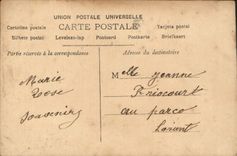 UNION POSTALE UNIVERSELLE
CARTE POSTALE
Cartolina postale
Tarjeta postal
Bilhete postal Levelezo-lap Postcard Postkarte Briefkaart
Partie réservée à la correspondance
Adresse du destinataire
Marie
Rose
souvenirs
Melle Jeanne
au parco
Lorient